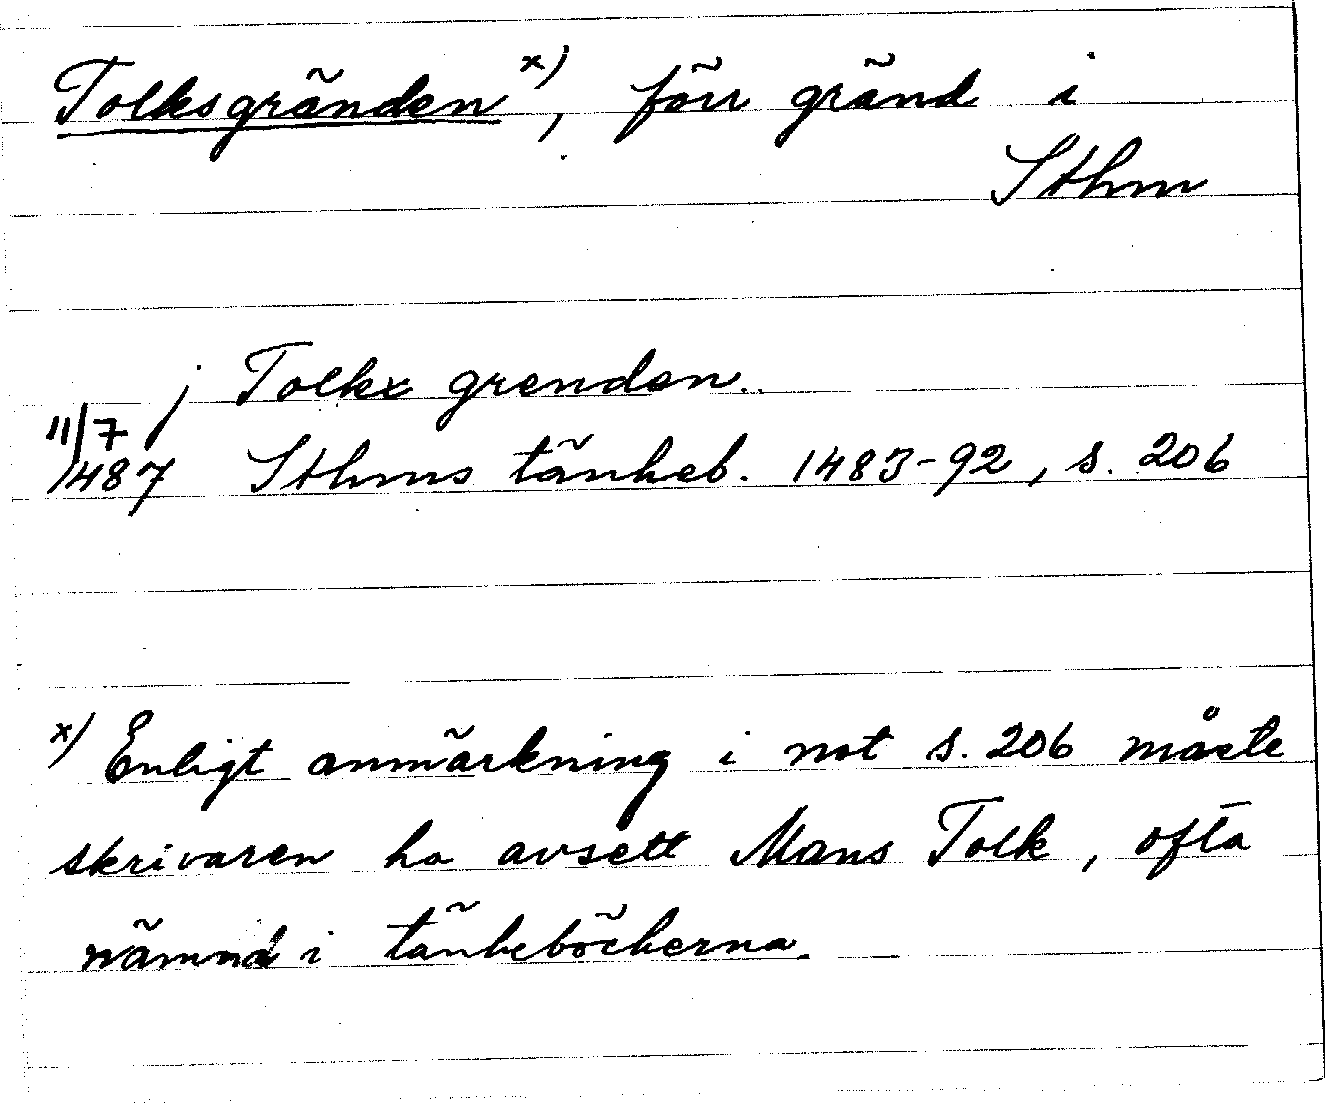 Tolksgränden x), förr gränd i
Sthm
j Tolkx grenden..
11/7
1487 Sthms tänkeb. 1483-92, s. 206
x) Enligt anmärkning i not s. 206 måste
skrivaren ha avsett Mans Tolk, ofta
nämnd i tänkeböckerna.